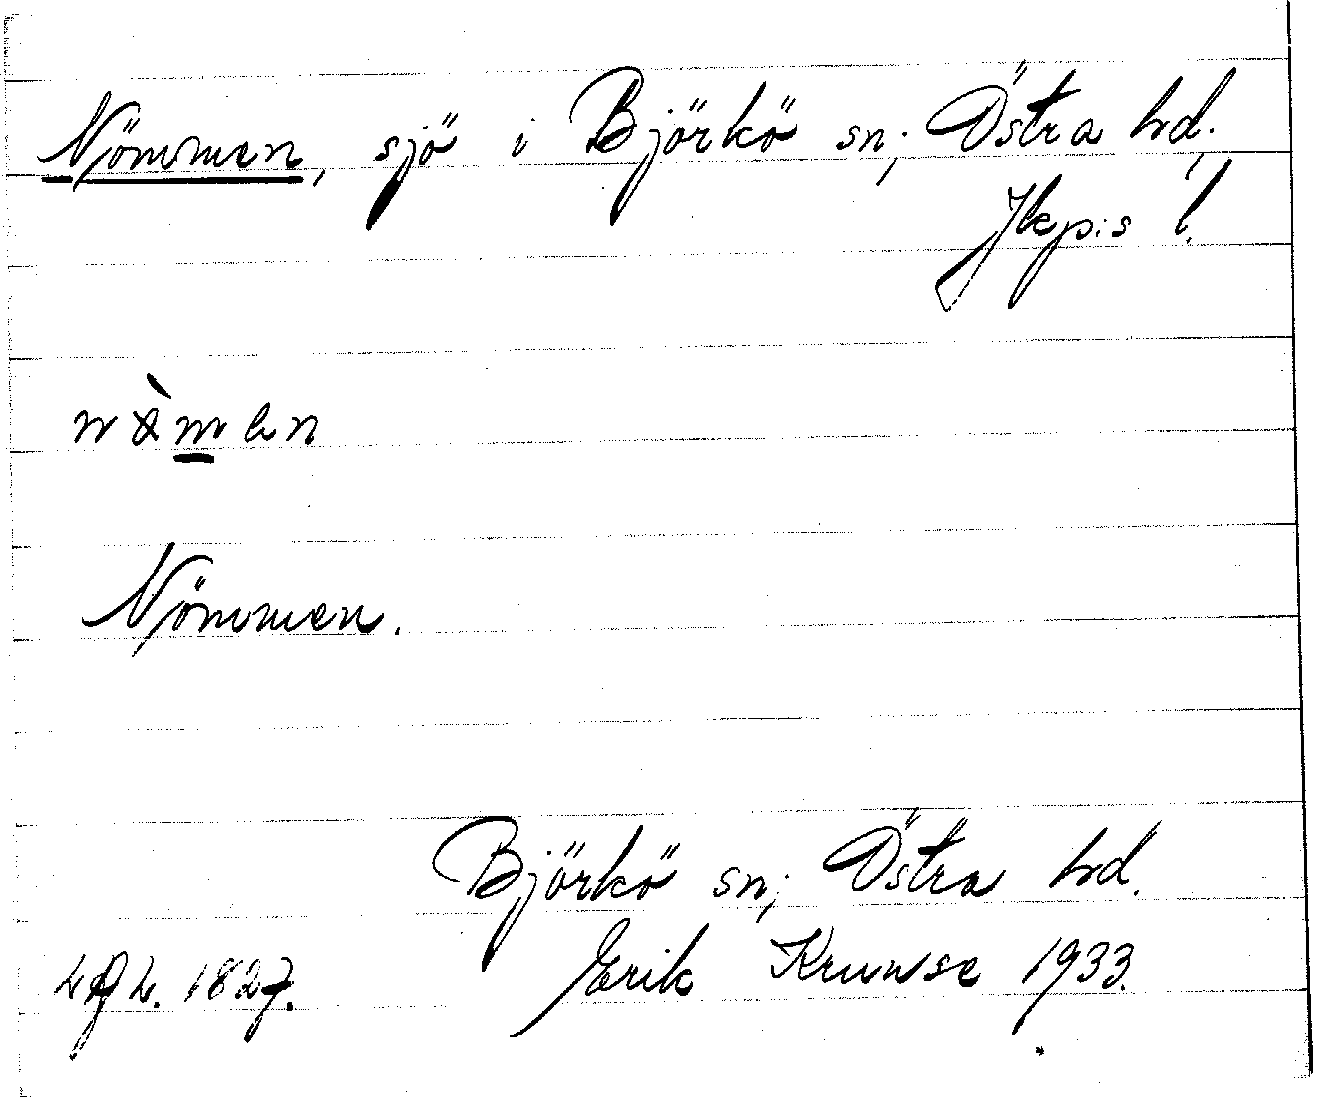 Nömmen, sjö i Björkö sn; Östra hd.
Jkp:s l.
Nömmen.
Björkö sn; Östra hd.
Erik Kruuse 1933.
1827.